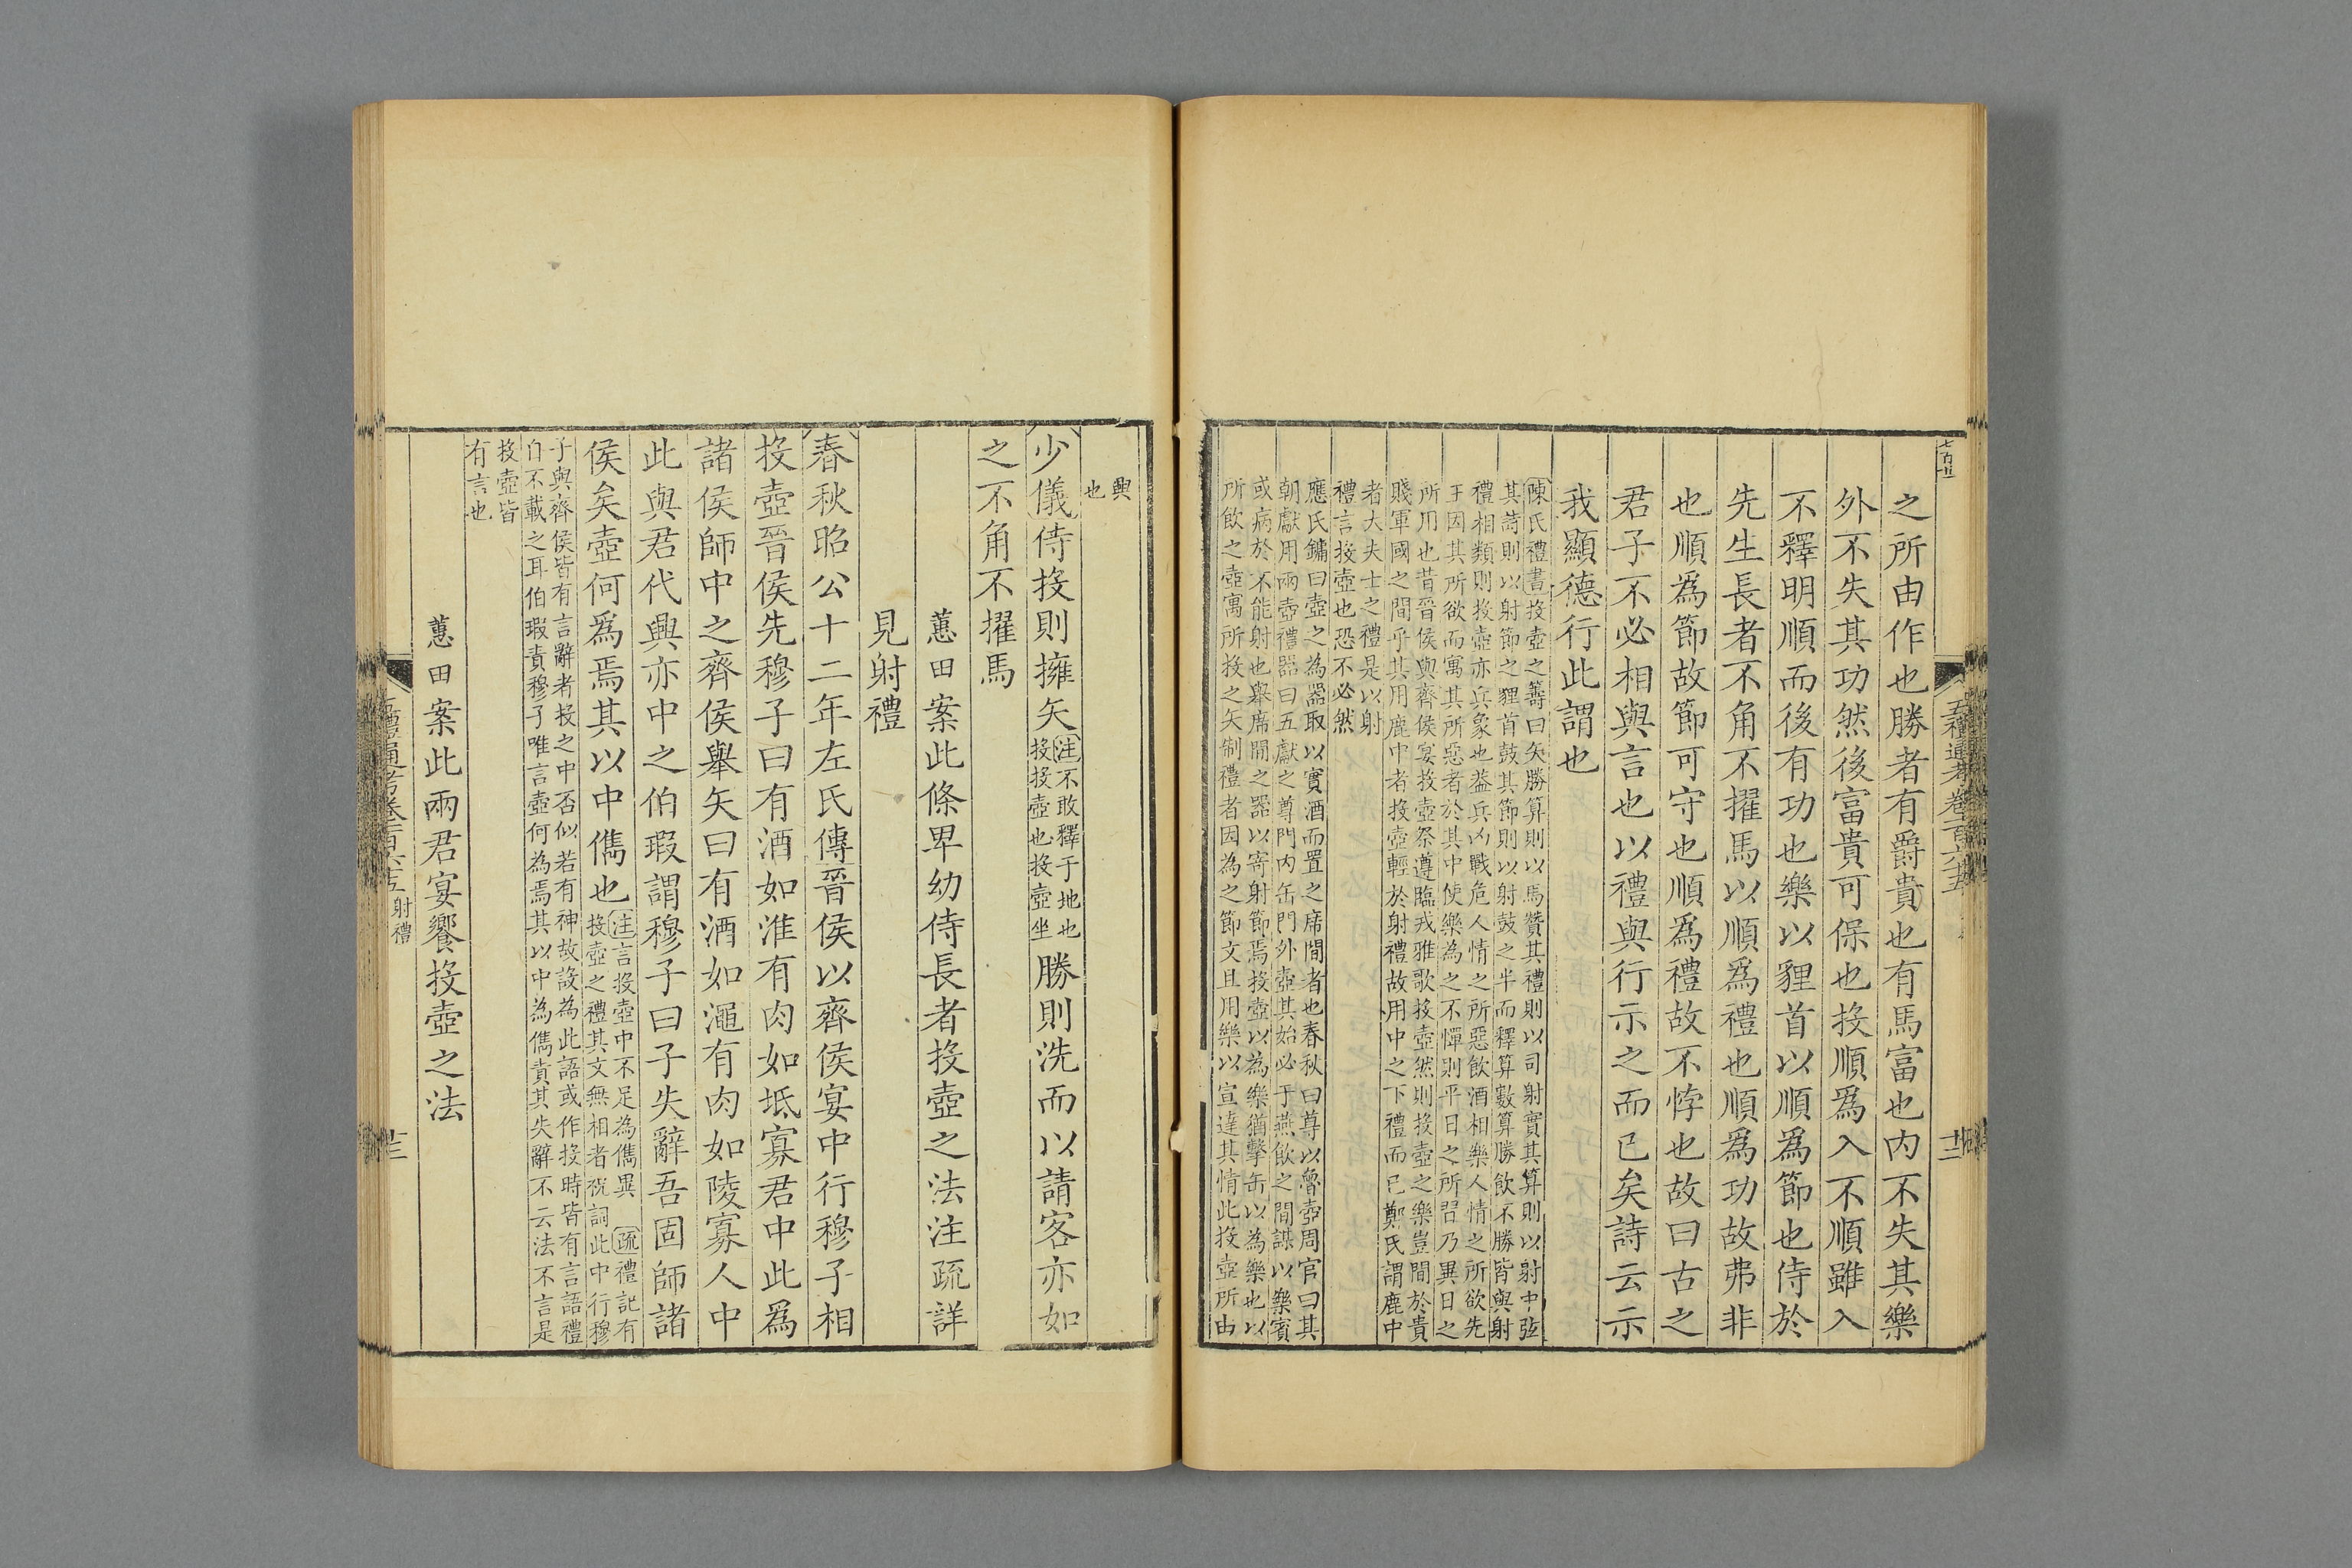 之所由作也勝者有爵貴也有馬富也内不失其樂
外不失其功然後富貴可保也投順爲入不順雖入
不釋明順而後有功也樂以貍首以順爲節也侍於
先生長者不角不擢馬以順爲禮也順爲功故弗非
也順爲節故節可守也順爲禮故不悖也故曰古之
君子不必相與言也以禮與行示之而已矣詩云示
我顯德行此謂也
陳氏禮書投壺之籌曰矢勝算則以馬贊其禮則以司射實其算則以射中弦
其詩則以射節之貍首鼓其節則以射鼓之半而釋算數算勝飲不勝皆與射
禮相類則投壺亦兵象也蓋兵凶戰危人情之所惡飲酒相樂人情之所欲先
王因其所欲而寓其所惡者於其中使樂為之不憚則平日之所習乃異日之
所用也昔晉侯與齊侯宴投壺祭遵臨戎雅歌投壺然則投壺之樂豈間於貴
賤軍國之間乎其用鹿中者投壺輕於射禮故用中之下禮而已鄭氏謂鹿中
者大夫士之禮是以射
禮言投壺也恐不必然
應氏鏞曰壺之為器取以實酒而置之席間者也春秋曰尊以魯壺周官曰其
朝獻用兩壺禮器曰五獻之尊門内缶門外壺其始必于燕飲之間謀以樂賓
或病於不能射也舉席間之器以寄射節焉投壺以為樂猶擊缶以為樂也以
所飲之壺寓所投之矢制禮者因為之節文且用樂以宣達其情此投壺所由
五禮通考卷一百六十五
興
也
少儀侍投則擁矢注不敢釋于地也
投投壺也投壺坐勝則洗而以請客亦如
之不角不擢馬
蕙田案此條卑幼侍長者投壺之法注疏詳
見射禮
春秋昭公十二年左氏傳晉侯以齊侯宴中行穆子相
投壺晉侯先穆子曰有酒如淮有肉如坻寡君中此爲
諸侯師中之齊侯舉矢曰有酒如澠有肉如陵寡人中
此與君代興亦中之伯瑕謂穆子曰子失辭吾固師諸
侯矣壺何爲焉其以中儁也注言投壺中不足為儁異 疏禮記有
投壺之禮其文無相者祝詞此中行穆
子與齊侯皆有言辭者投之中否似若有神故設為此語或作投時皆有言語禮
自不載之耳伯瑕責穆子唯言壺何為焉其以中為儁責其失辭不云法不言是
投壺皆
有言也
蕙田案此兩君宴饗投壺之法
五禮通考卷一百六十五 射禮